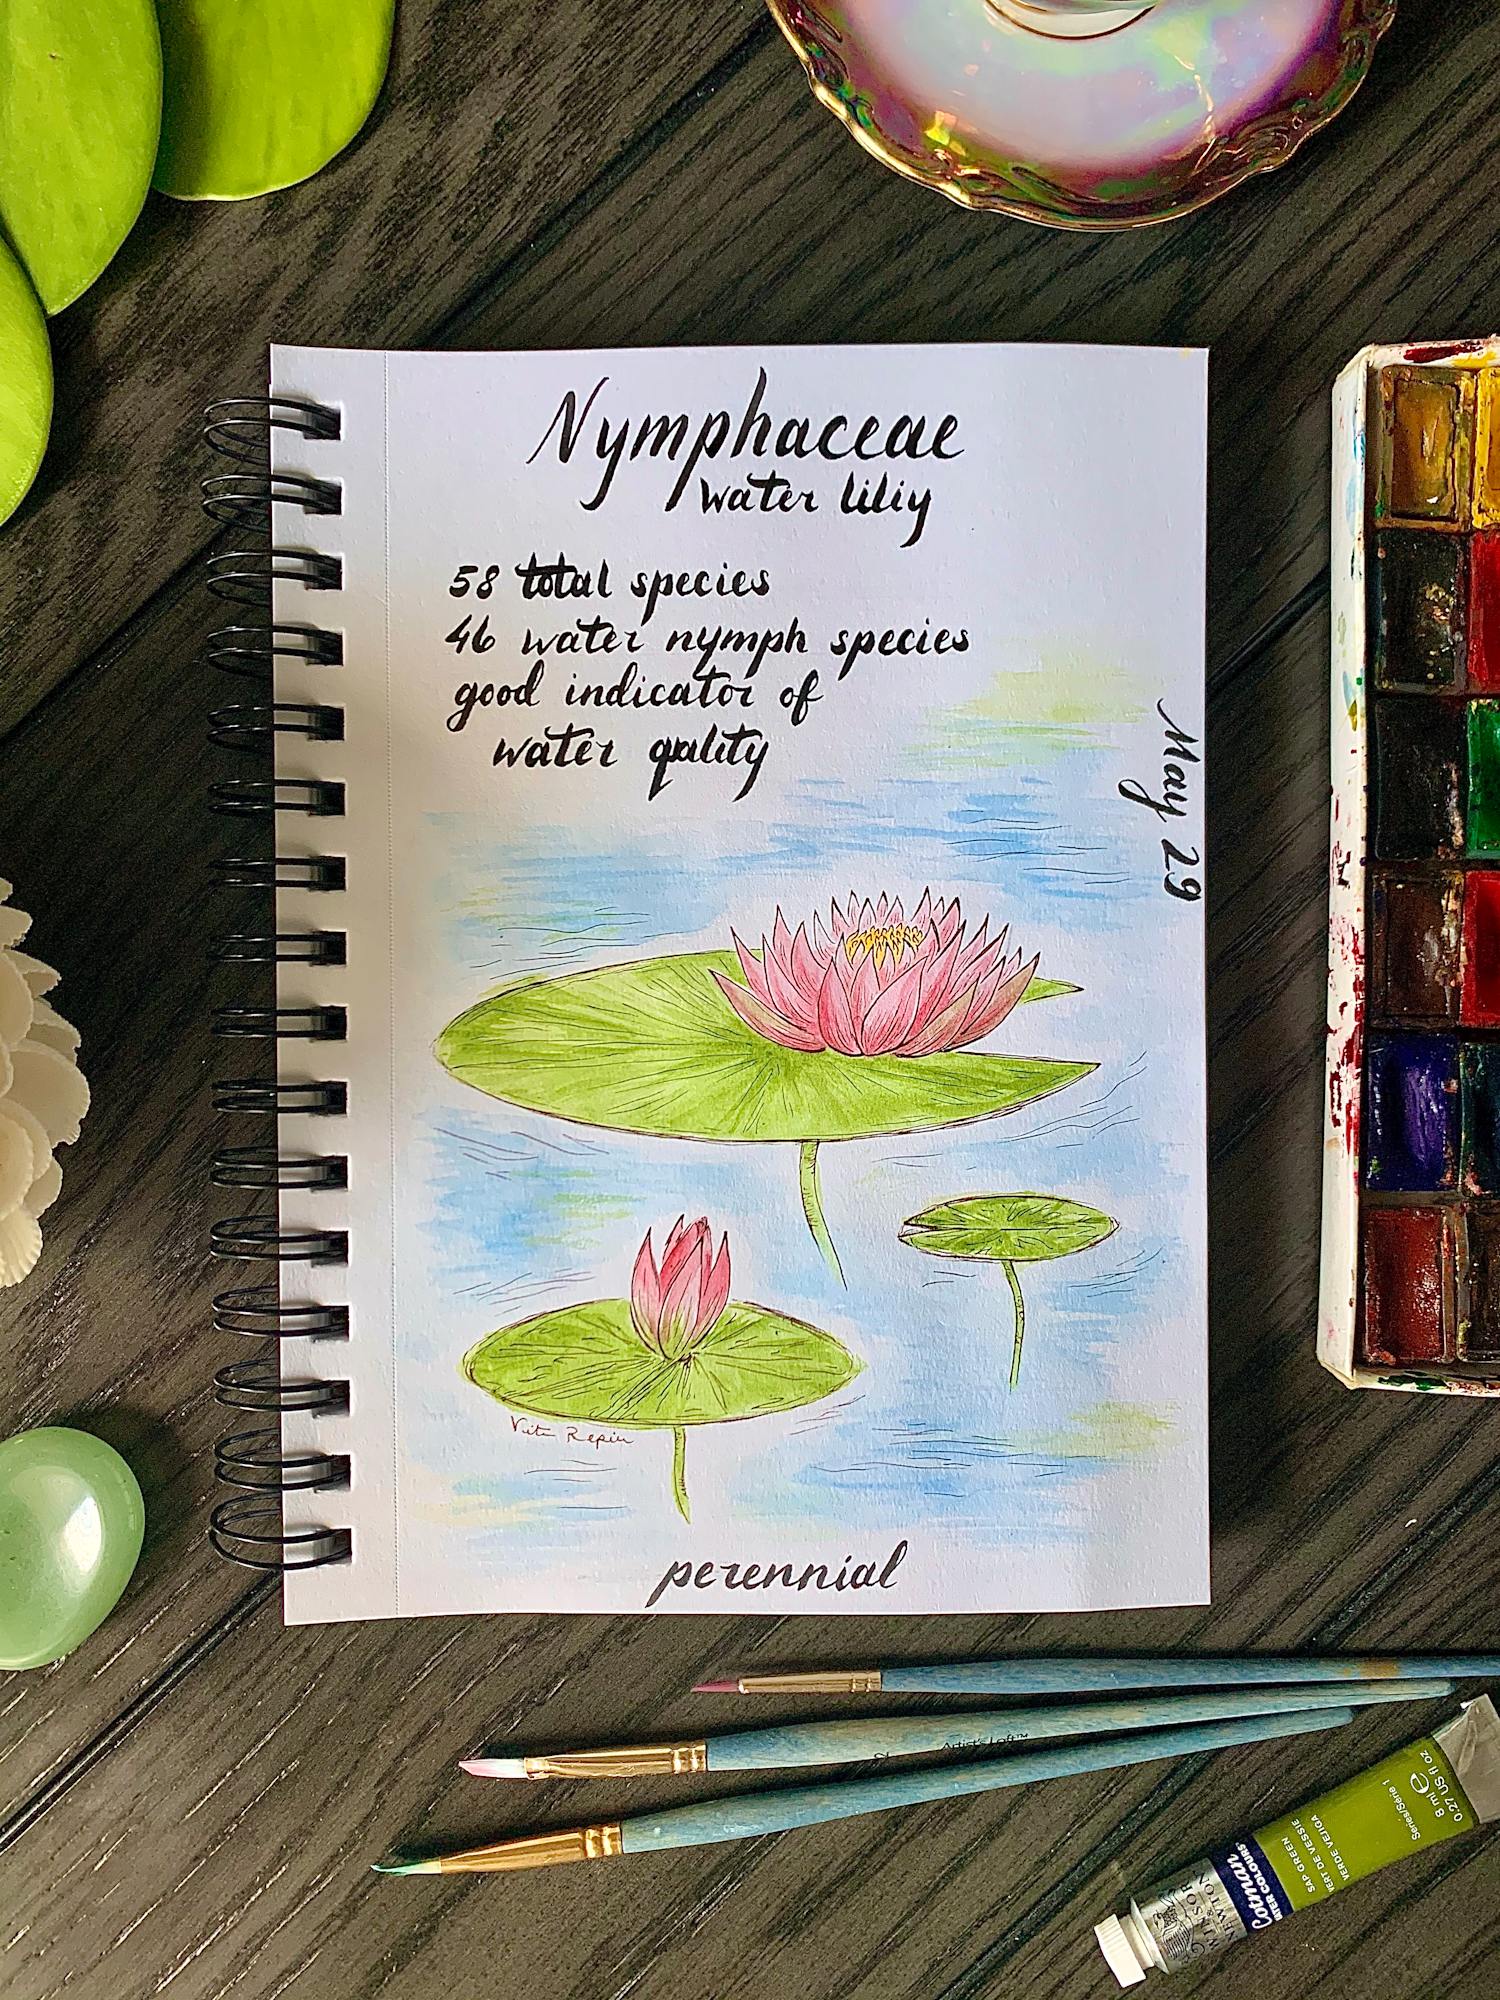 Nymphaceae
water liliy
58 total species
46 water nymph species
good indicator of
water quality
May 29
Vita Repin
perennial
Artist's Loft™
2
8 ml e
0.27 US fl oz
Series/Série 1
SAP GREEN
VERT DE VESSIE
VERDE VEJIGA
Cotman
WATER COLOURS
WINSOR
& NEWTON